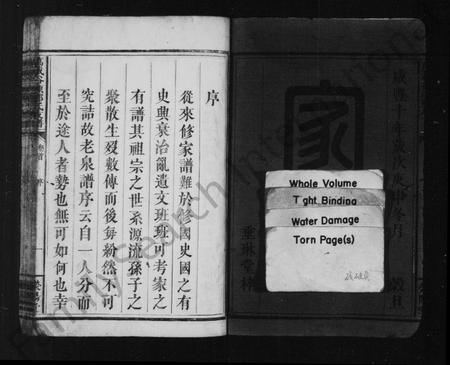 咸豐十年歲次庚申冬月 穀旦
家
垂琳堂梓
Whole Volume
Tight Binding
Water Damage
Torn Page(s)
序
從來修家譜難於修國史國之有
史興衰治亂遺文班班可考家之
有譜其祖宗之世系源流孫子之
聚散生歿數傳而後每紛然不可
究詰故老泉譜序云自一人分而
至於途人者勢也無可如何也幸
卷首 序
FamilySearch International